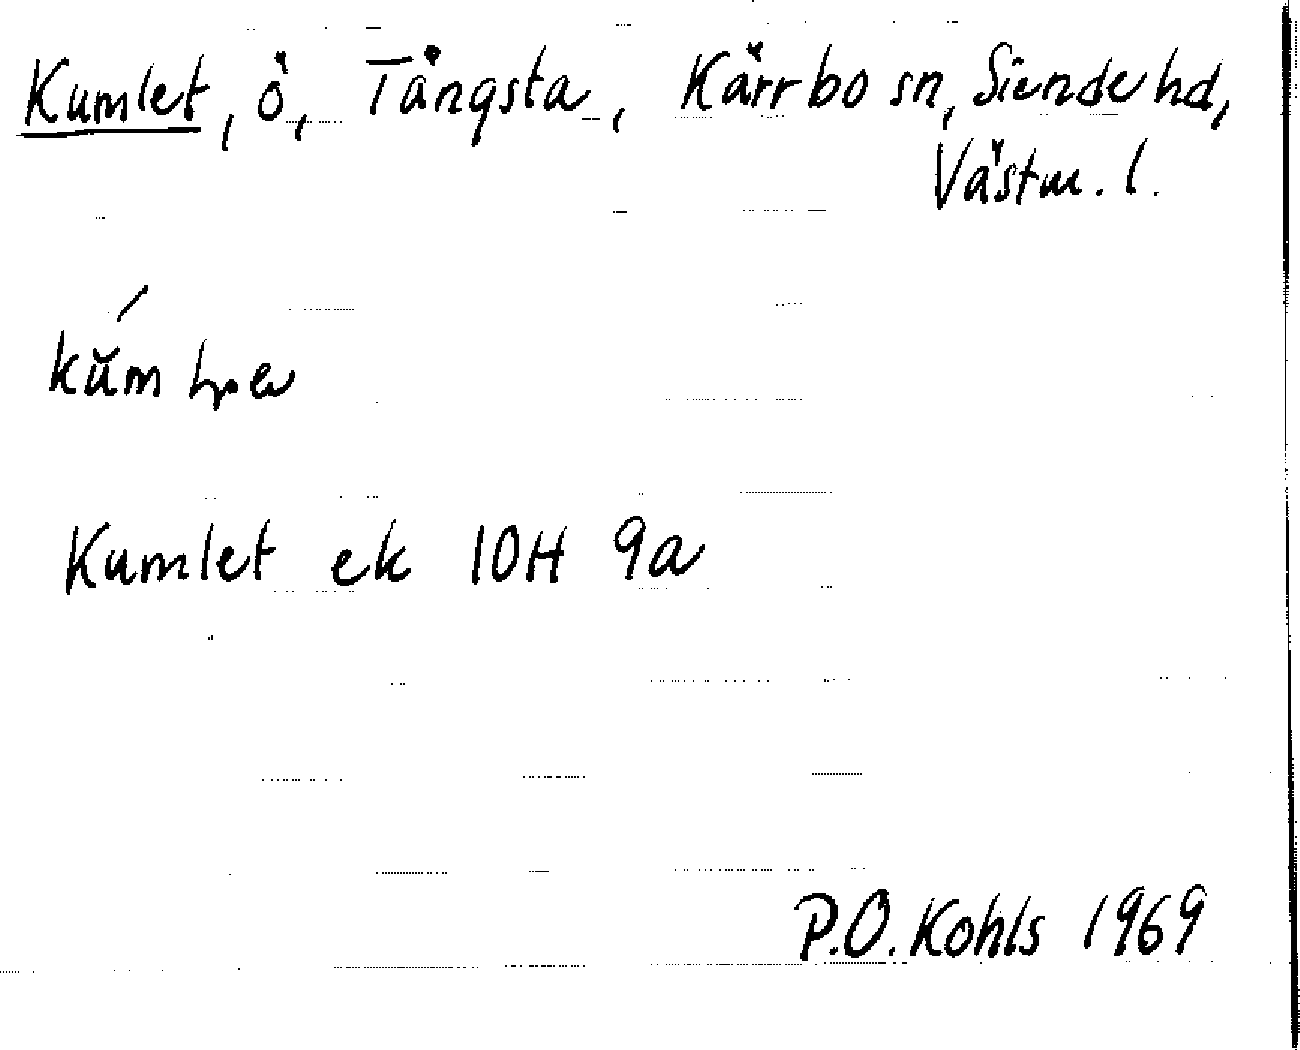 Kumlet, ö, Tångsta, Kärrbo sn, Siende hd,
Västm. l.
Kumlet ek 10H 9a
P.O. Kohls 1969